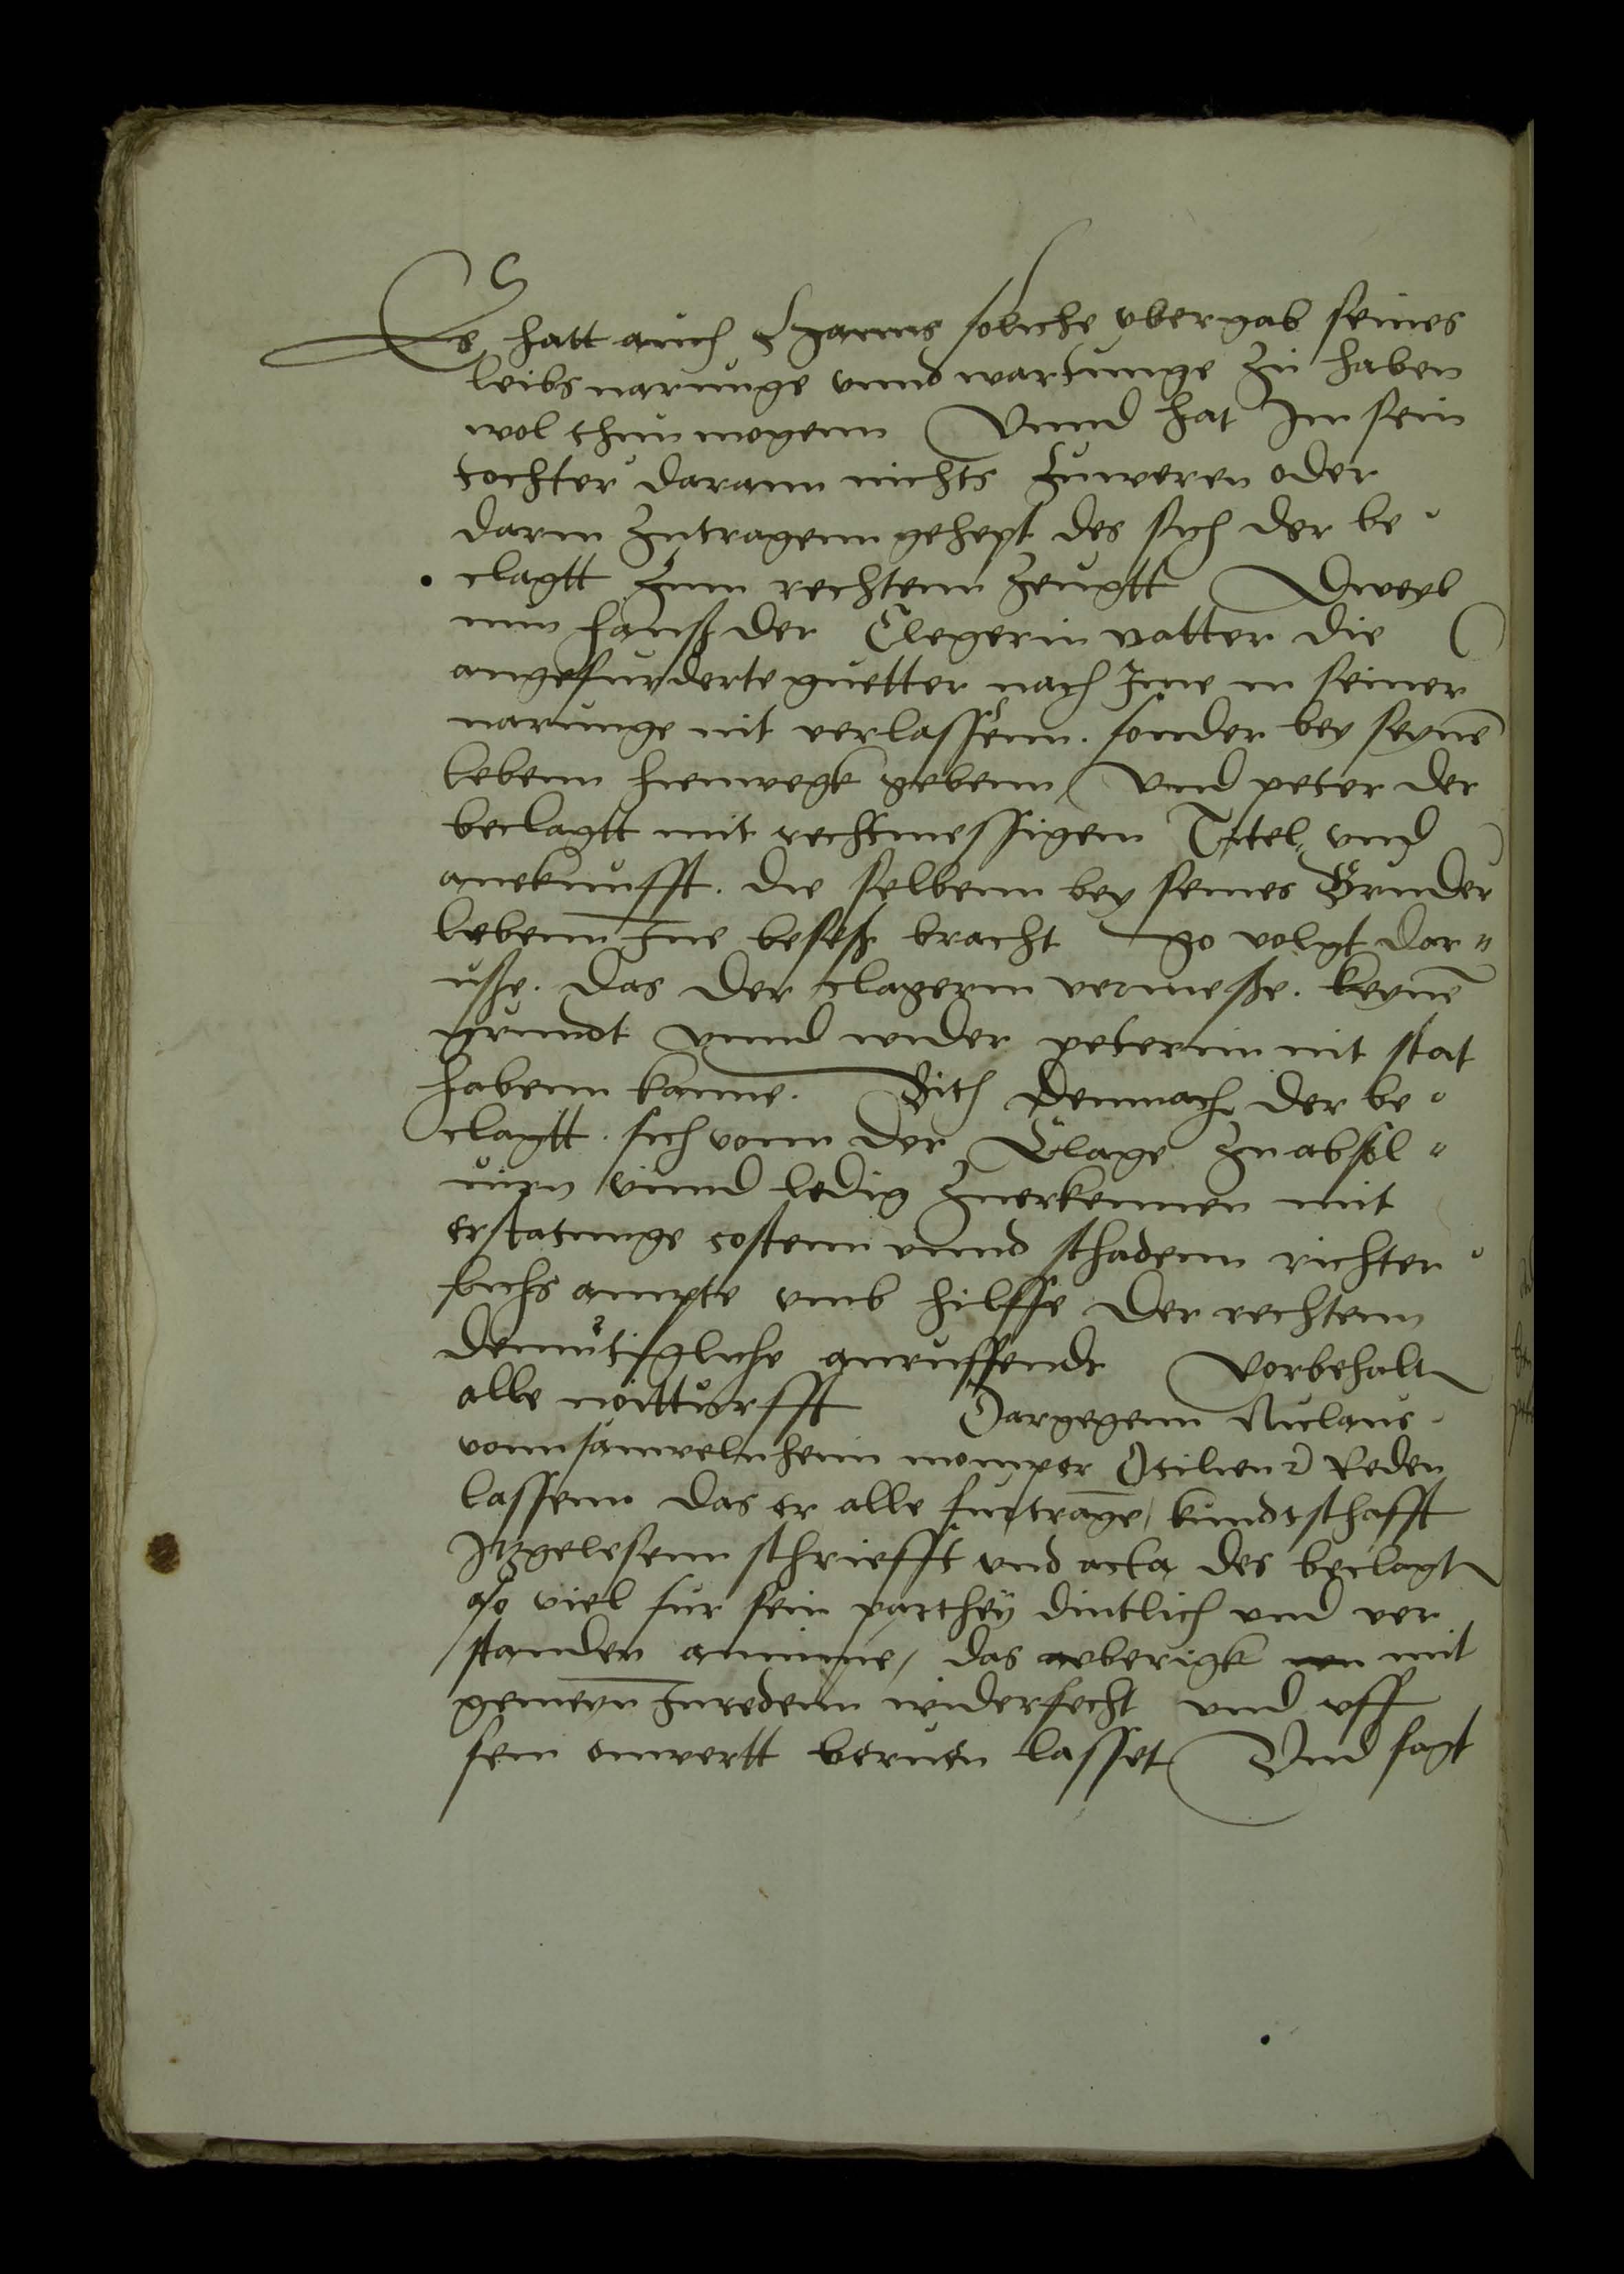 Es hatt auch Hanns solliche vbergab seines
leibs narunge vnnd wartunge zu haben
wol thun mogenn Vnnd hat Im sein
tochter darann nichts zuweren oder
darin zutragenn gehept des sich der be
clagtt zum rechtenn zeugtt Dweyl
nun Hanß der Clegerin vatter die
angefurderte guetter nach Ime in seiner
narunge nit verlassenn. sonder bey seynē
lebenn hienwegk gebenn / vnd peter der
beclagtt mit rechtmessigem Titel vnd
anekunfft. die selbenn bey seines Bruder
lebenn Ine beseß bracht so volgt dar
uße. das der clagerin vermeße. keynē
grundt vnnd wider peternn nit stat
habenn kanne. Bith demnach der be
clagtt. sich vonn der Clage zu absol
uirn vnnd ledig zuerkennen mit
erstatunge costenn vnnd schadenn richter
lichs ampte vmb hilffe der rechtenn
demutigliche anruffendt vorbehalt
alle noitturfft Dargegenn Niclaus
vonn sauwelnheim momper Otilien Reden
lassenn das er alle furtrage / kundtschafft
Itzgelesenn schriefft vnd acta des beclagt
so viel fur sein parthey dintlich vnd ver
standen annime / das veberigk mit
gemeyn Inredenn widerfecht vnd vff
sein anwertt beruen lasset Vnd sagt